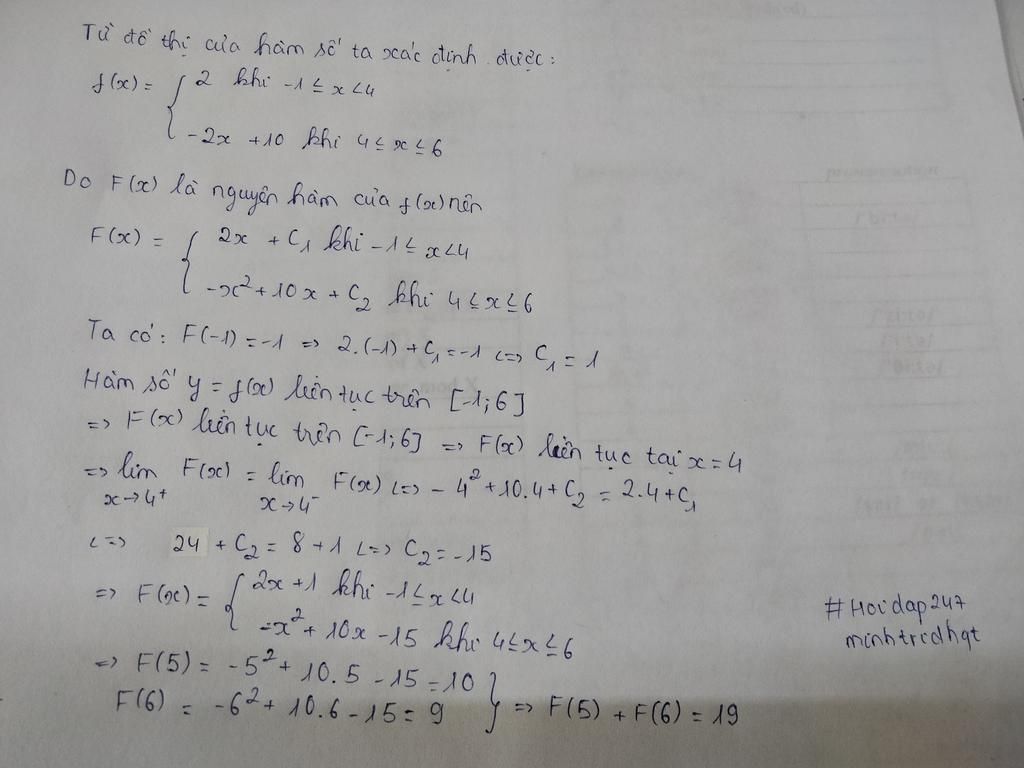 Từ đồ thị của hàm số ta xác định được:
f(x) = { 2 khi -1 ≤ x < 4
-2x + 10 khi 4 ≤ x ≤ 6
Do F(x) là nguyên hàm của f(x) nên
F(x) = { 2x + C₁ khi -1 ≤ x < 4
-x² + 10x + C₂ khi 4 ≤ x ≤ 6
Ta có: F(-1) = -1 => 2.(-1) + C₁ = -1 <=> C₁ = 1
Hàm số y = f(x) liên tục trên [-1;6]
=> F(x) liên tục trên [-1;6] => F(x) liên tục tại x = 4
=> lim F(x) = lim F(x) <=> -4² + 10.4 + C₂ = 2.4 + C₁
x→4⁺ x→4⁻
<=> 24 + C₂ = 8 + 1 <=> C₂ = -15
=> F(x) = { 2x + 1 khi -1 ≤ x < 4
-x² + 10x - 15 khi 4 ≤ x ≤ 6
=> F(5) = -5² + 10.5 - 15 = 10
F(6) = -6² + 10.6 - 15 = 9 } => F(5) + F(6) = 19
#Hoidap247
minhtridhqt